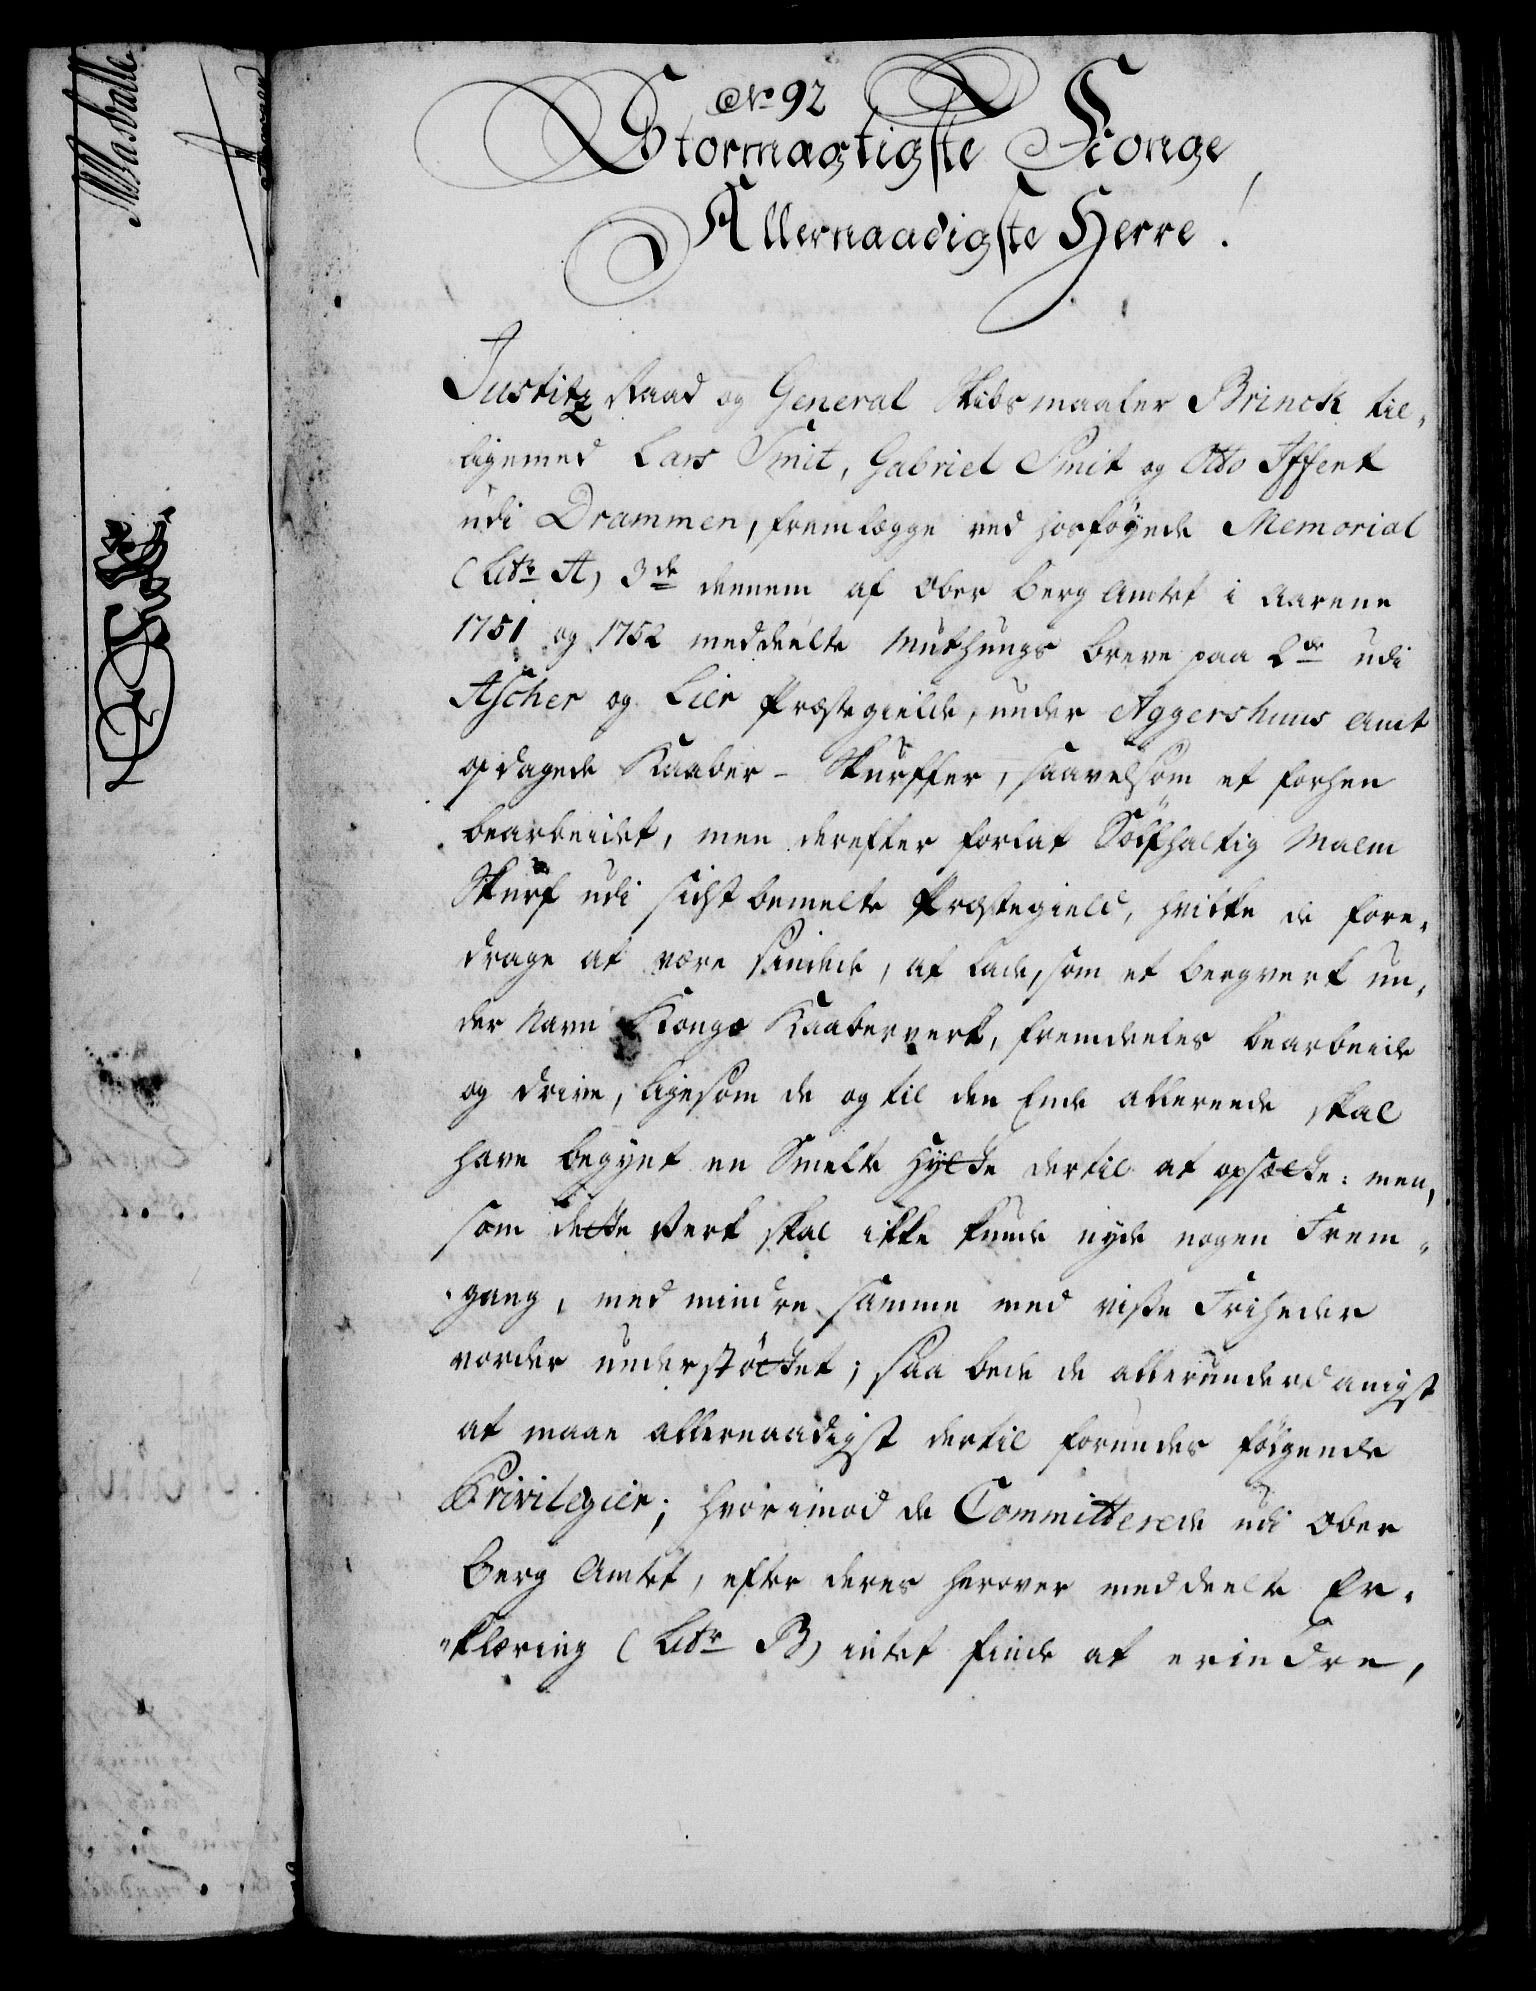 No. 92
Stormægtigste Konge,
Allernaadigste Herre!
Justitz Raad og General Skibsmaaler Brinck til,
ligemed Lars Smit, Gabriel Smit og Otto
udi Drammen, fremlægge ved hosføyede Memorial
(Litr A) 3de dennem af Ober Berg Amtet i Aarene
1751 og 1752 meddeelte Muthungs Breve paa 2de udi
Ascher og Lier Præstegielde, under Aggershuus Amt
opdagede Kaaber-Skurffer, saavelsom et forhen
bearbeidet, men derefter forlat Sølfhaltig Malm
Skurf udi sidstbemelte Præstegield, hvilke de fore,
drage at være sindede, at lade, som et Bergverk un,
der Navn Konge Kaaberverk, fremdeeles bearbeide
og drive, ligesom de og til den Ende allereede skal
have begynt en Smelte Hytte dertil at opsætte: men,
som dette Verk skal ikke kunde nyde nogen Frem,
gang, med mindre samme med visse Friheder
vorder understøttet; saa bede de allerunderdanigst
at maae allernaadigst dertil forundes følgende
Privilegier; hvorimod de Committerede udi Ober
Berg Amtet, efter deres herover meddeelte Er,
"klæring (Litr B) intet finde at erindre,